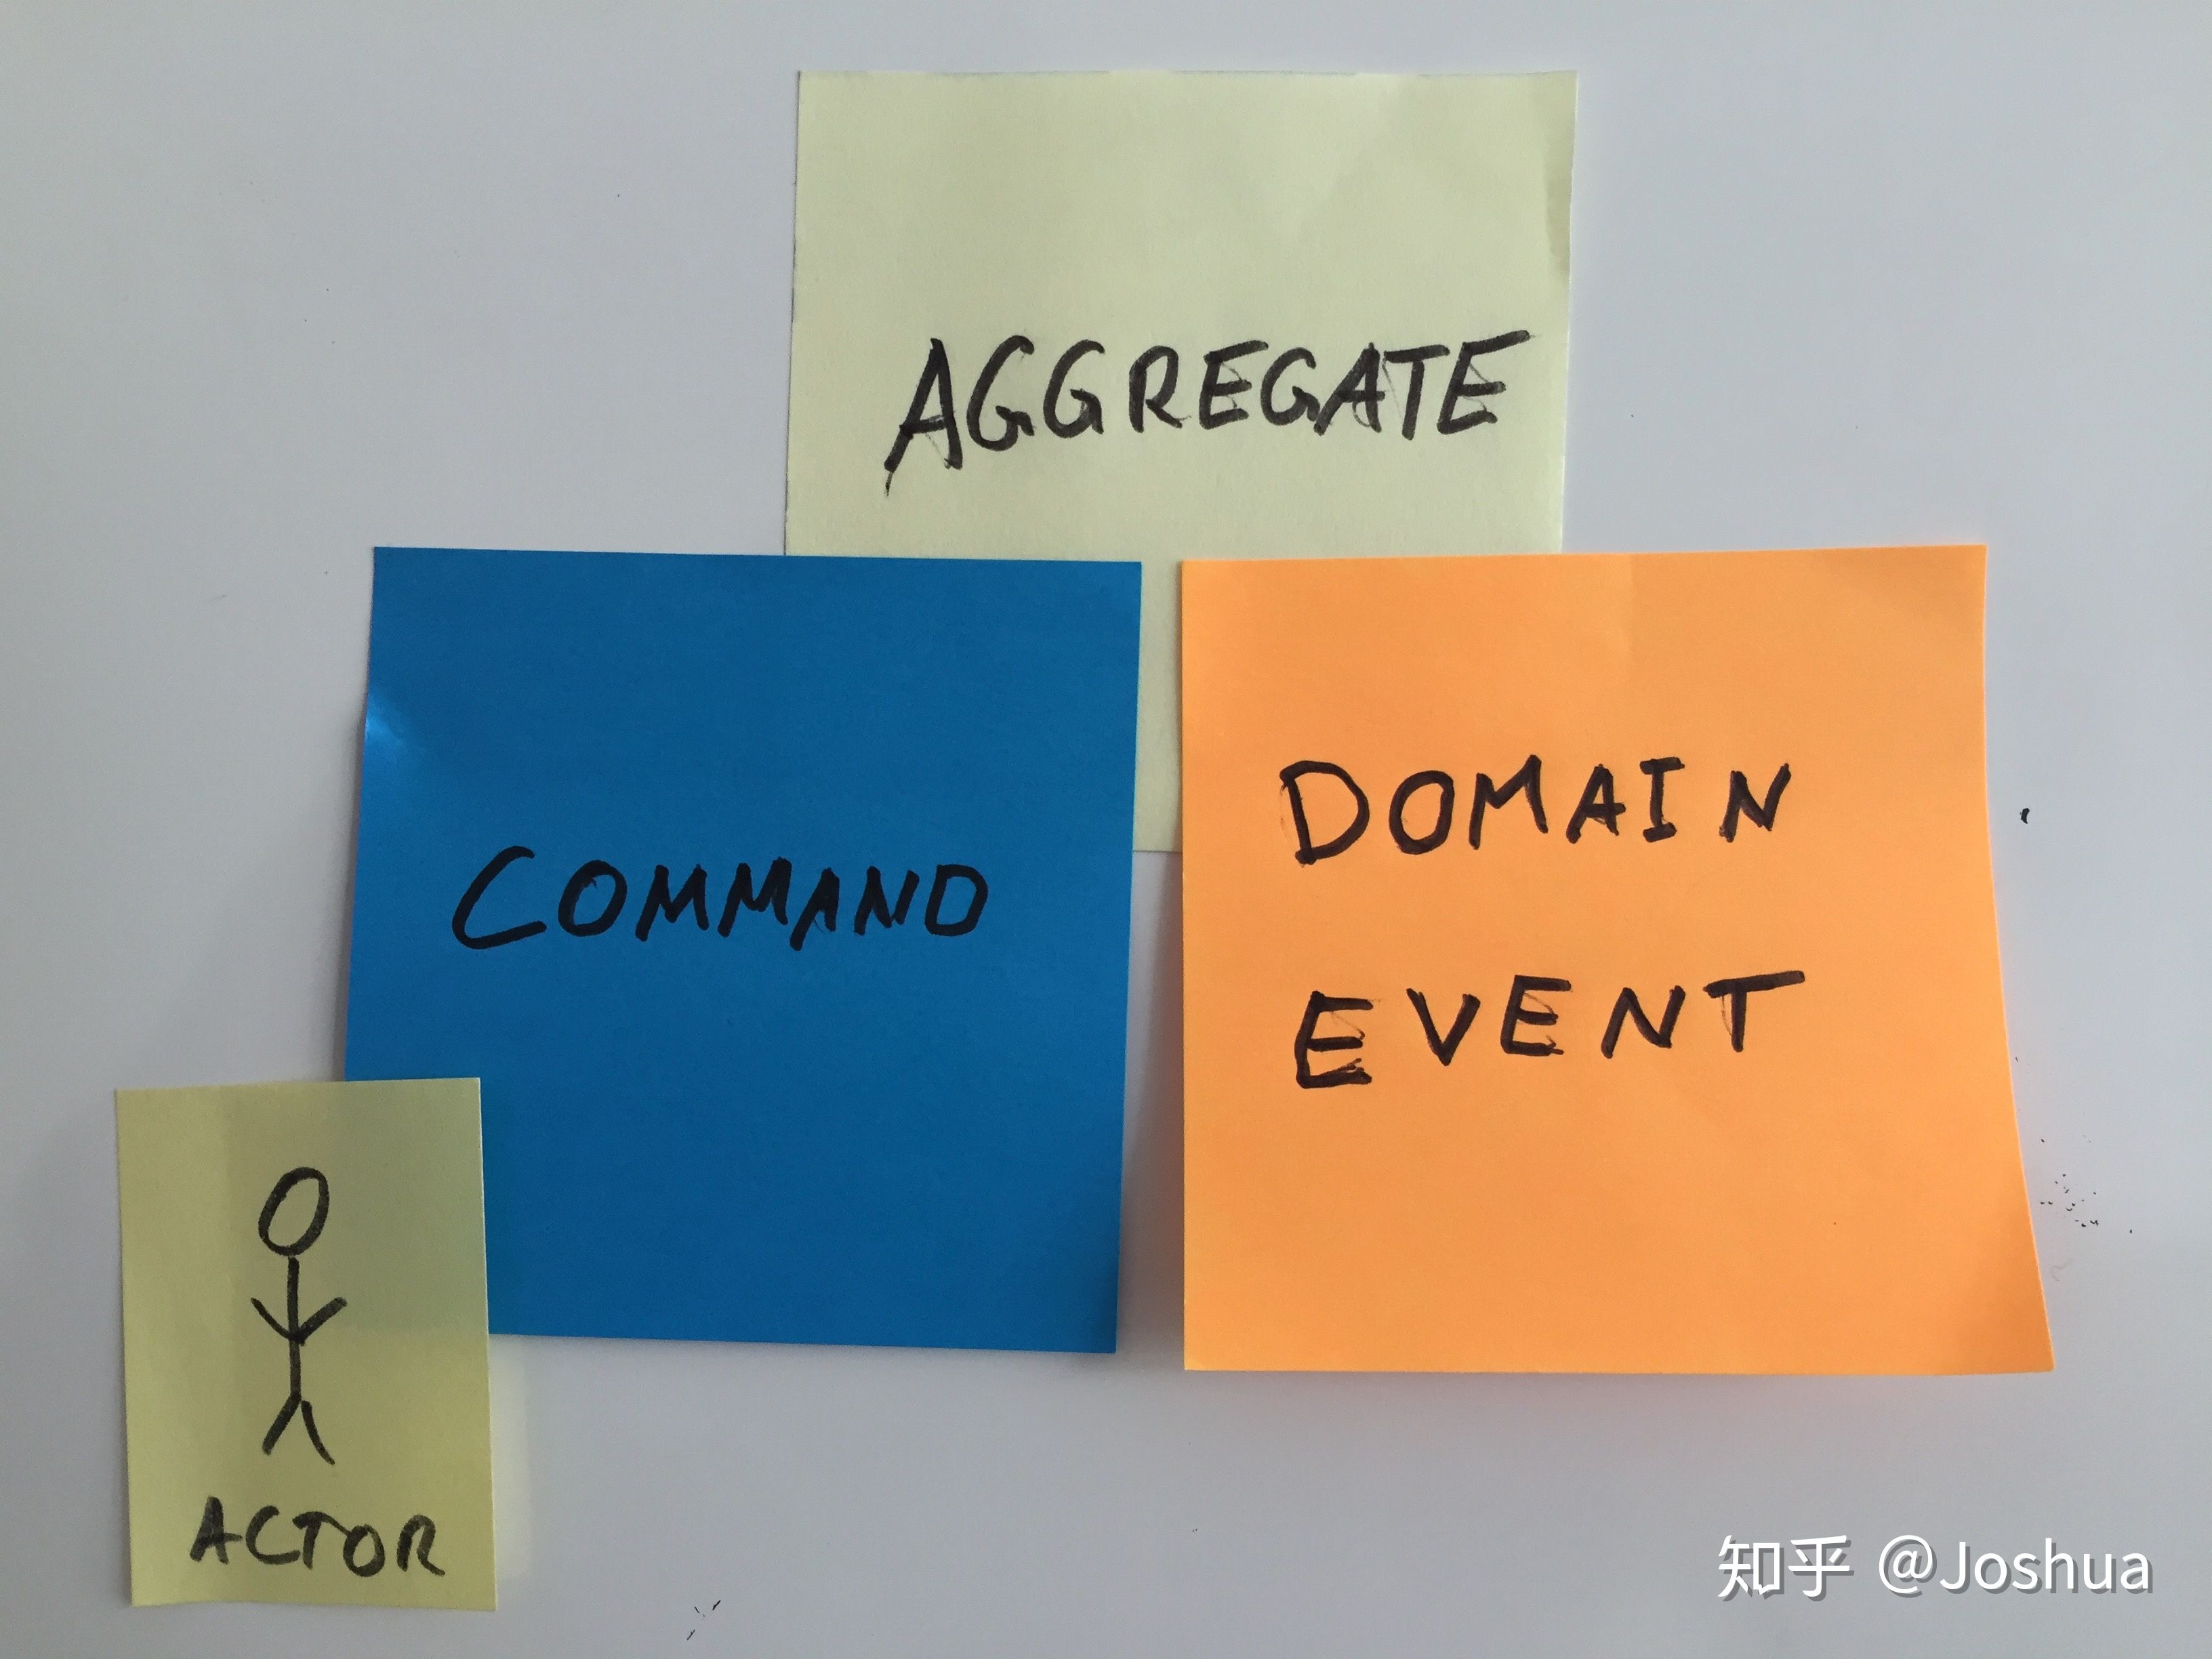 AGGREGATE
COMMAND
DOMAIN
EVENT
ACTOR
知乎 @Joshua